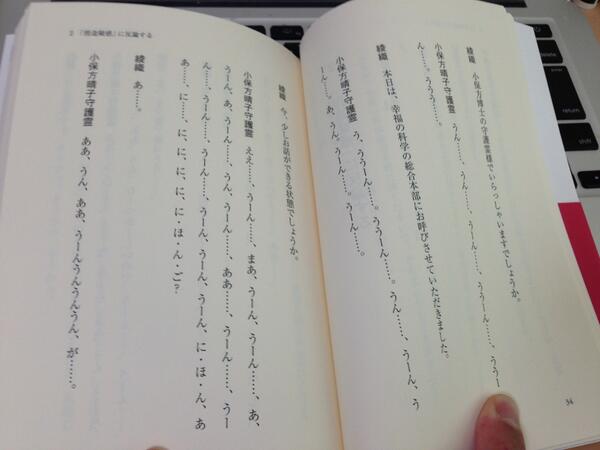 綾織 小保方博士の守護霊様でいらっしゃいますでしょうか。
小保方晴子守護霊 うん……、うーん……、うーん……、ううーん……、ううー
ん……。ううう……。
綾織 本日は、幸福の科学の総合本部にお呼びさせていただきました。
小保方晴子守護霊 う、ううーん……。ううーん……。うん……、うーん、う
ーん……。あ、うん、うーん……。うーん……。
54
2 「捏造疑惑」に反論する
綾織 今、少しお話ができる状態でしょうか。
小保方晴子守護霊 ええ……、うーん……、まあ、うーん、うーん……、あ、
うーん、あ、うーん……、うん、うーん……、ああ……、うーん……、うー
ん……、うーん……、うーん、うーん、うーん、に・ほ・ん、あ
あ……、に……、に、に、に、に・ほ・ん・ご？
綾織 あ……。
小保方晴子守護霊 ああ、うん、ああ、うーんうんうんうん、が……。
delete
return
shift